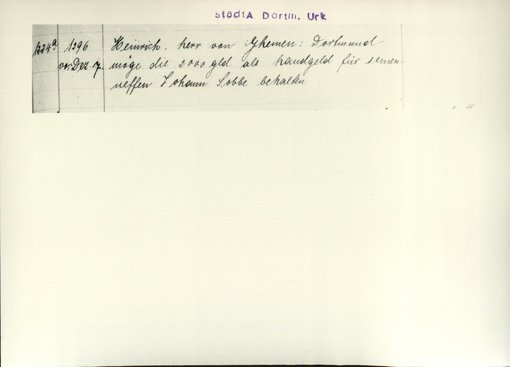 StadtA Dortm. Urk
1396 Heinrich, herr von Ghemen: Dortmund
vor Dez. 7. möge die 2000 gld als handgeld für seinen
neffen Johann Sobbe behalten